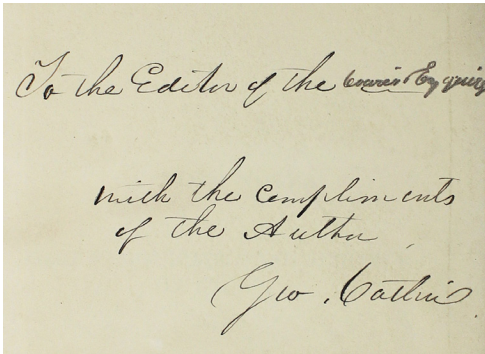 To the Editor of the Courier & Enquirer
with the compliments
of the Author
Geo. Catlin